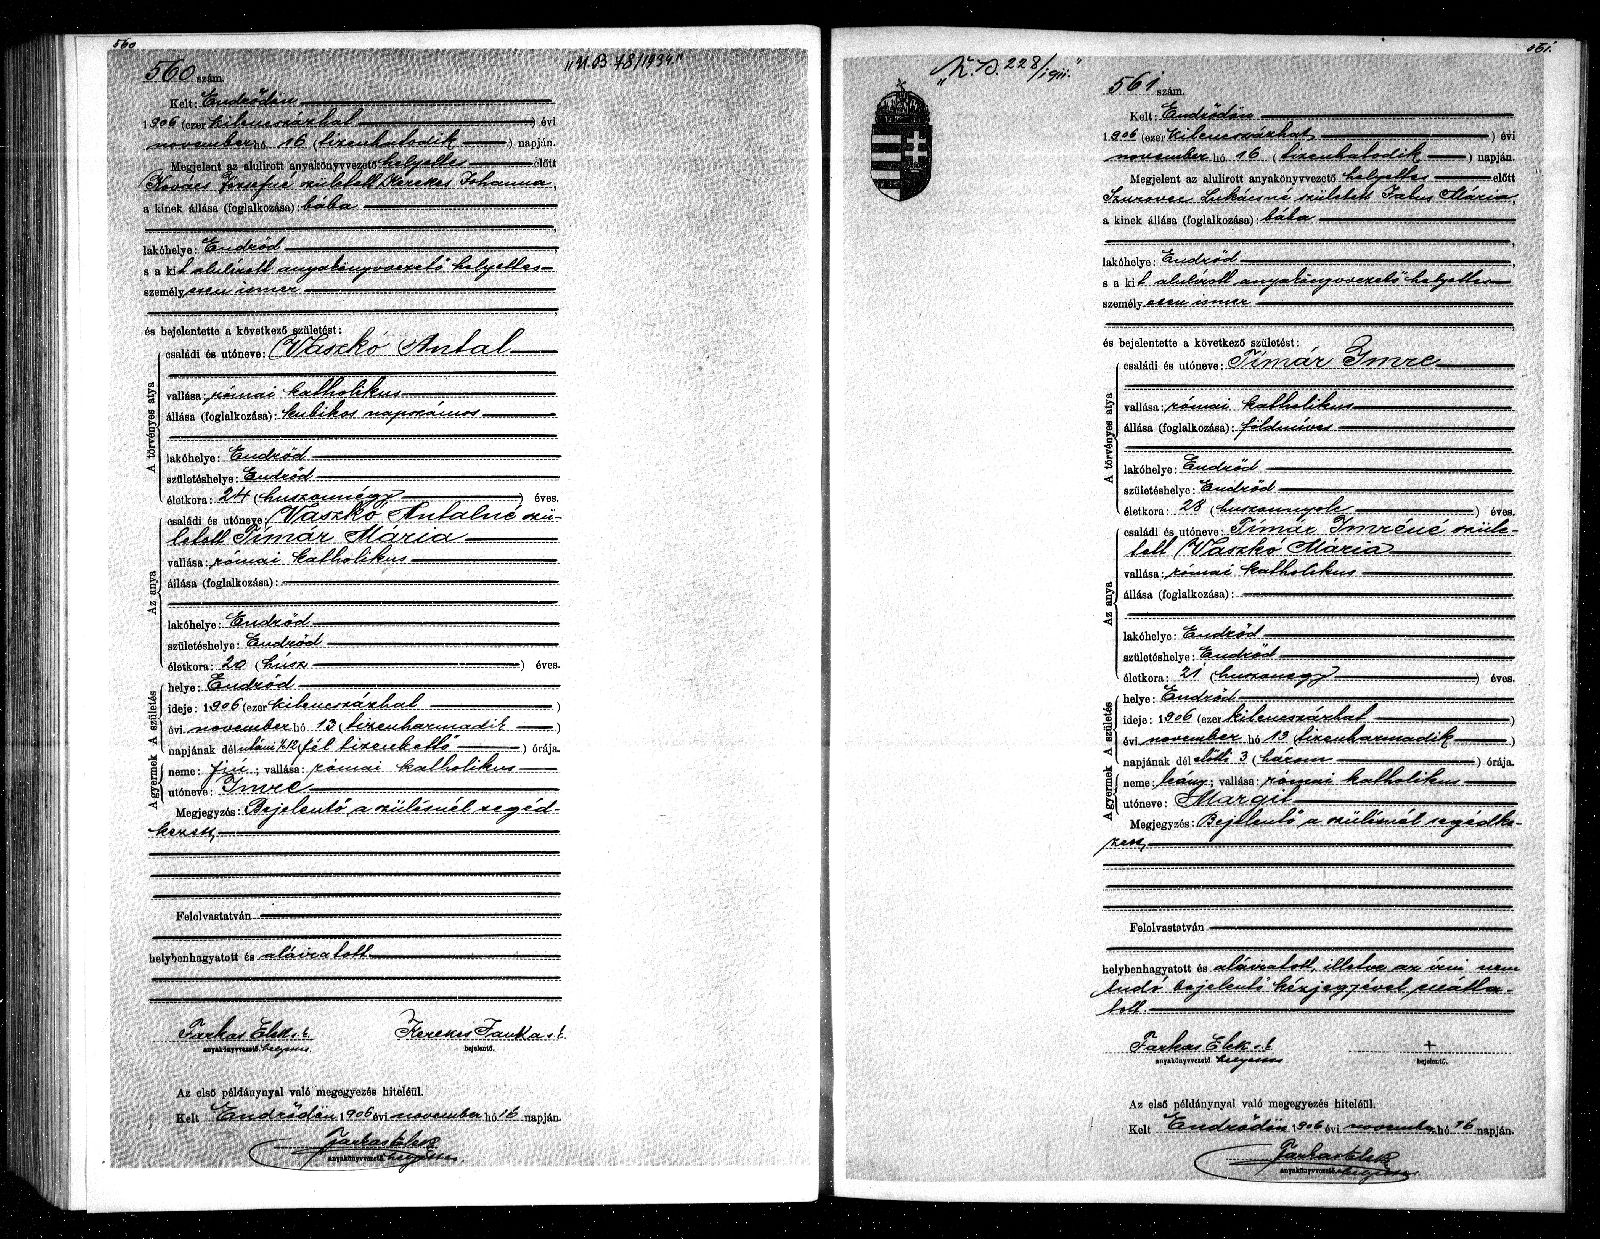 560
560 szám.
Kelt: Endrődön
1906 (ezer kilencszázhat) évi
november hó 16 (tizenhatodik) napján.
Megjelent az alulirott anyakönyvvezető helyettes előtt
Kovács Józsefné született Kerekes Johanna,
a kinek állása (foglalkozása): bába
lakóhelye: Endrőd
s a kit alulírott anyakönyvvezető helyettes
személyesen ismer
és bejelentette a következő születést:
A törvényes atya
családi és utóneve: Vaszkó Antal
vallása: római katholikus
állása (foglalkozása): kubikos napszámos
lakóhelye: Endrőd
születéshelye: Endrőd
életkora: 24 (huszonnégy) éves.
Az anya
családi és utóneve: Vaszkó Antalné szü-
letett Tímár Mária
vallása: római katholikus
állása (foglalkozása):
lakóhelye: Endrőd
születéshelye: Endrőd
életkora: 20 (húsz) éves.
A gyermek A születés
helye: Endrőd
ideje: 1906 (ezer kilencszázhat)
évi november hó 13 (tizenharmadik)
napjának dél utáni ½12 (fél tizenkettő) órája.
neme: fiú; vallása: római katholikus
utóneve: Imre
Megjegyzés: Bejelentő a szülésnél segéd-
kezett,
Felolvastatván
helybenhagyatott és aláiratott
Farkas Elek s.k.
anyakönyvvezető helyettes
bejelentő.
Az első példánynyal való megegyezés hiteléül.
Kelt Endrődön 1906 évi november hó 16 napján.
Farkas Elek
anyakönyvvezető helyettes
„K.P. 228/1911."
561.
561 szám.
Kelt: Endrődön
1906 (ezer kilencszázhat) évi
november hó 16 (tizenhatodik) napján.
Megjelent az alulirott anyakönyvvezető helyettes előtt
Szurovec Lukácsné született Mária,
a kinek állása (foglalkozása): bába
lakóhelye: Endrőd
s a kit alulírott anyakönyvvezető helyettes
személyesen ismer
és bejelentette a következő születést:
A törvényes atya
családi és utóneve: Tímár Imre
vallása: római katholikus
állása (foglalkozása): földmíves
lakóhelye: Endrőd
születéshelye: Endrőd
életkora: 28 (huszonnyolc) éves.
Az anya
családi és utóneve: Tímár Imréné szüle-
tett Vaszkó Mária
vallása: római katholikus
állása (foglalkozása):
lakóhelye: Endrőd
születéshelye: Endrőd
életkora: 21 (huszonegy) éves.
A gyermek A születés
helye: Endrőd
ideje: 1906 (ezer kilencszázhat)
évi november hó 13 (tizenharmadik)
napjának dél előtti 3 (három) órája.
neme: leány; vallása: római katholikus
utóneve: Margit
Megjegyzés: Bejelentő a szülésnél segédke-
zett,
Felolvastatván
helybenhagyatott és aláiratott, illetve az írni nem
tudó bejelentő kézjegyével ellátta-
tott.
Farkas Elek s.k. +
anyakönyvvezető helyettes bejelentő.
Az első példánynyal való megegyezés hiteléül.
Kelt Endrődön 1906 évi november hó 16 napján.
Farkas Elek
anyakönyvvezető helyettes